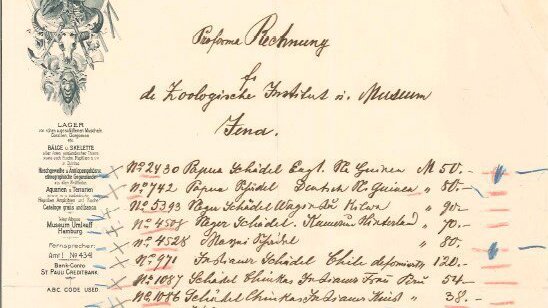 Proforma Rechnung
f.
de Zoologische Institut u. Museum
Jena.
LAGER
von
Muscheln
Corallen
etc.
BÄLGE u. SKELETTE
Hirschgeweihe u. Antilopengehörne
ethnographische Gegenstände
aus allen Erdtheilen
Aquarien u. Terrarien
Cataloge gratis und franco
Museum Umlauff
Hamburg
Fernsprecher:
Amt I No 4341
Bank-Conto
ST PAULI CREDITBANK.
A.B.C. CODE USED.
No 2430 Papua Schädel Engl. N. Guinea M 50.-
No 742 Papua Schädel Deutsch N. Guinea " 80.-
No 5393 Neger Schädel Kilwa " 90.-
No 4508 Neger Schädel. Kamerun Hinterland " 70.-
No 4528 Schädel " 80.-
No 971 Indianer Schädel Chile deformirt " 120.-
No 1087 Schädel Chinkas Indianer Frau Peru " 54.-
No 1086 Schädel Chinkas Indianer Kind " 38.-